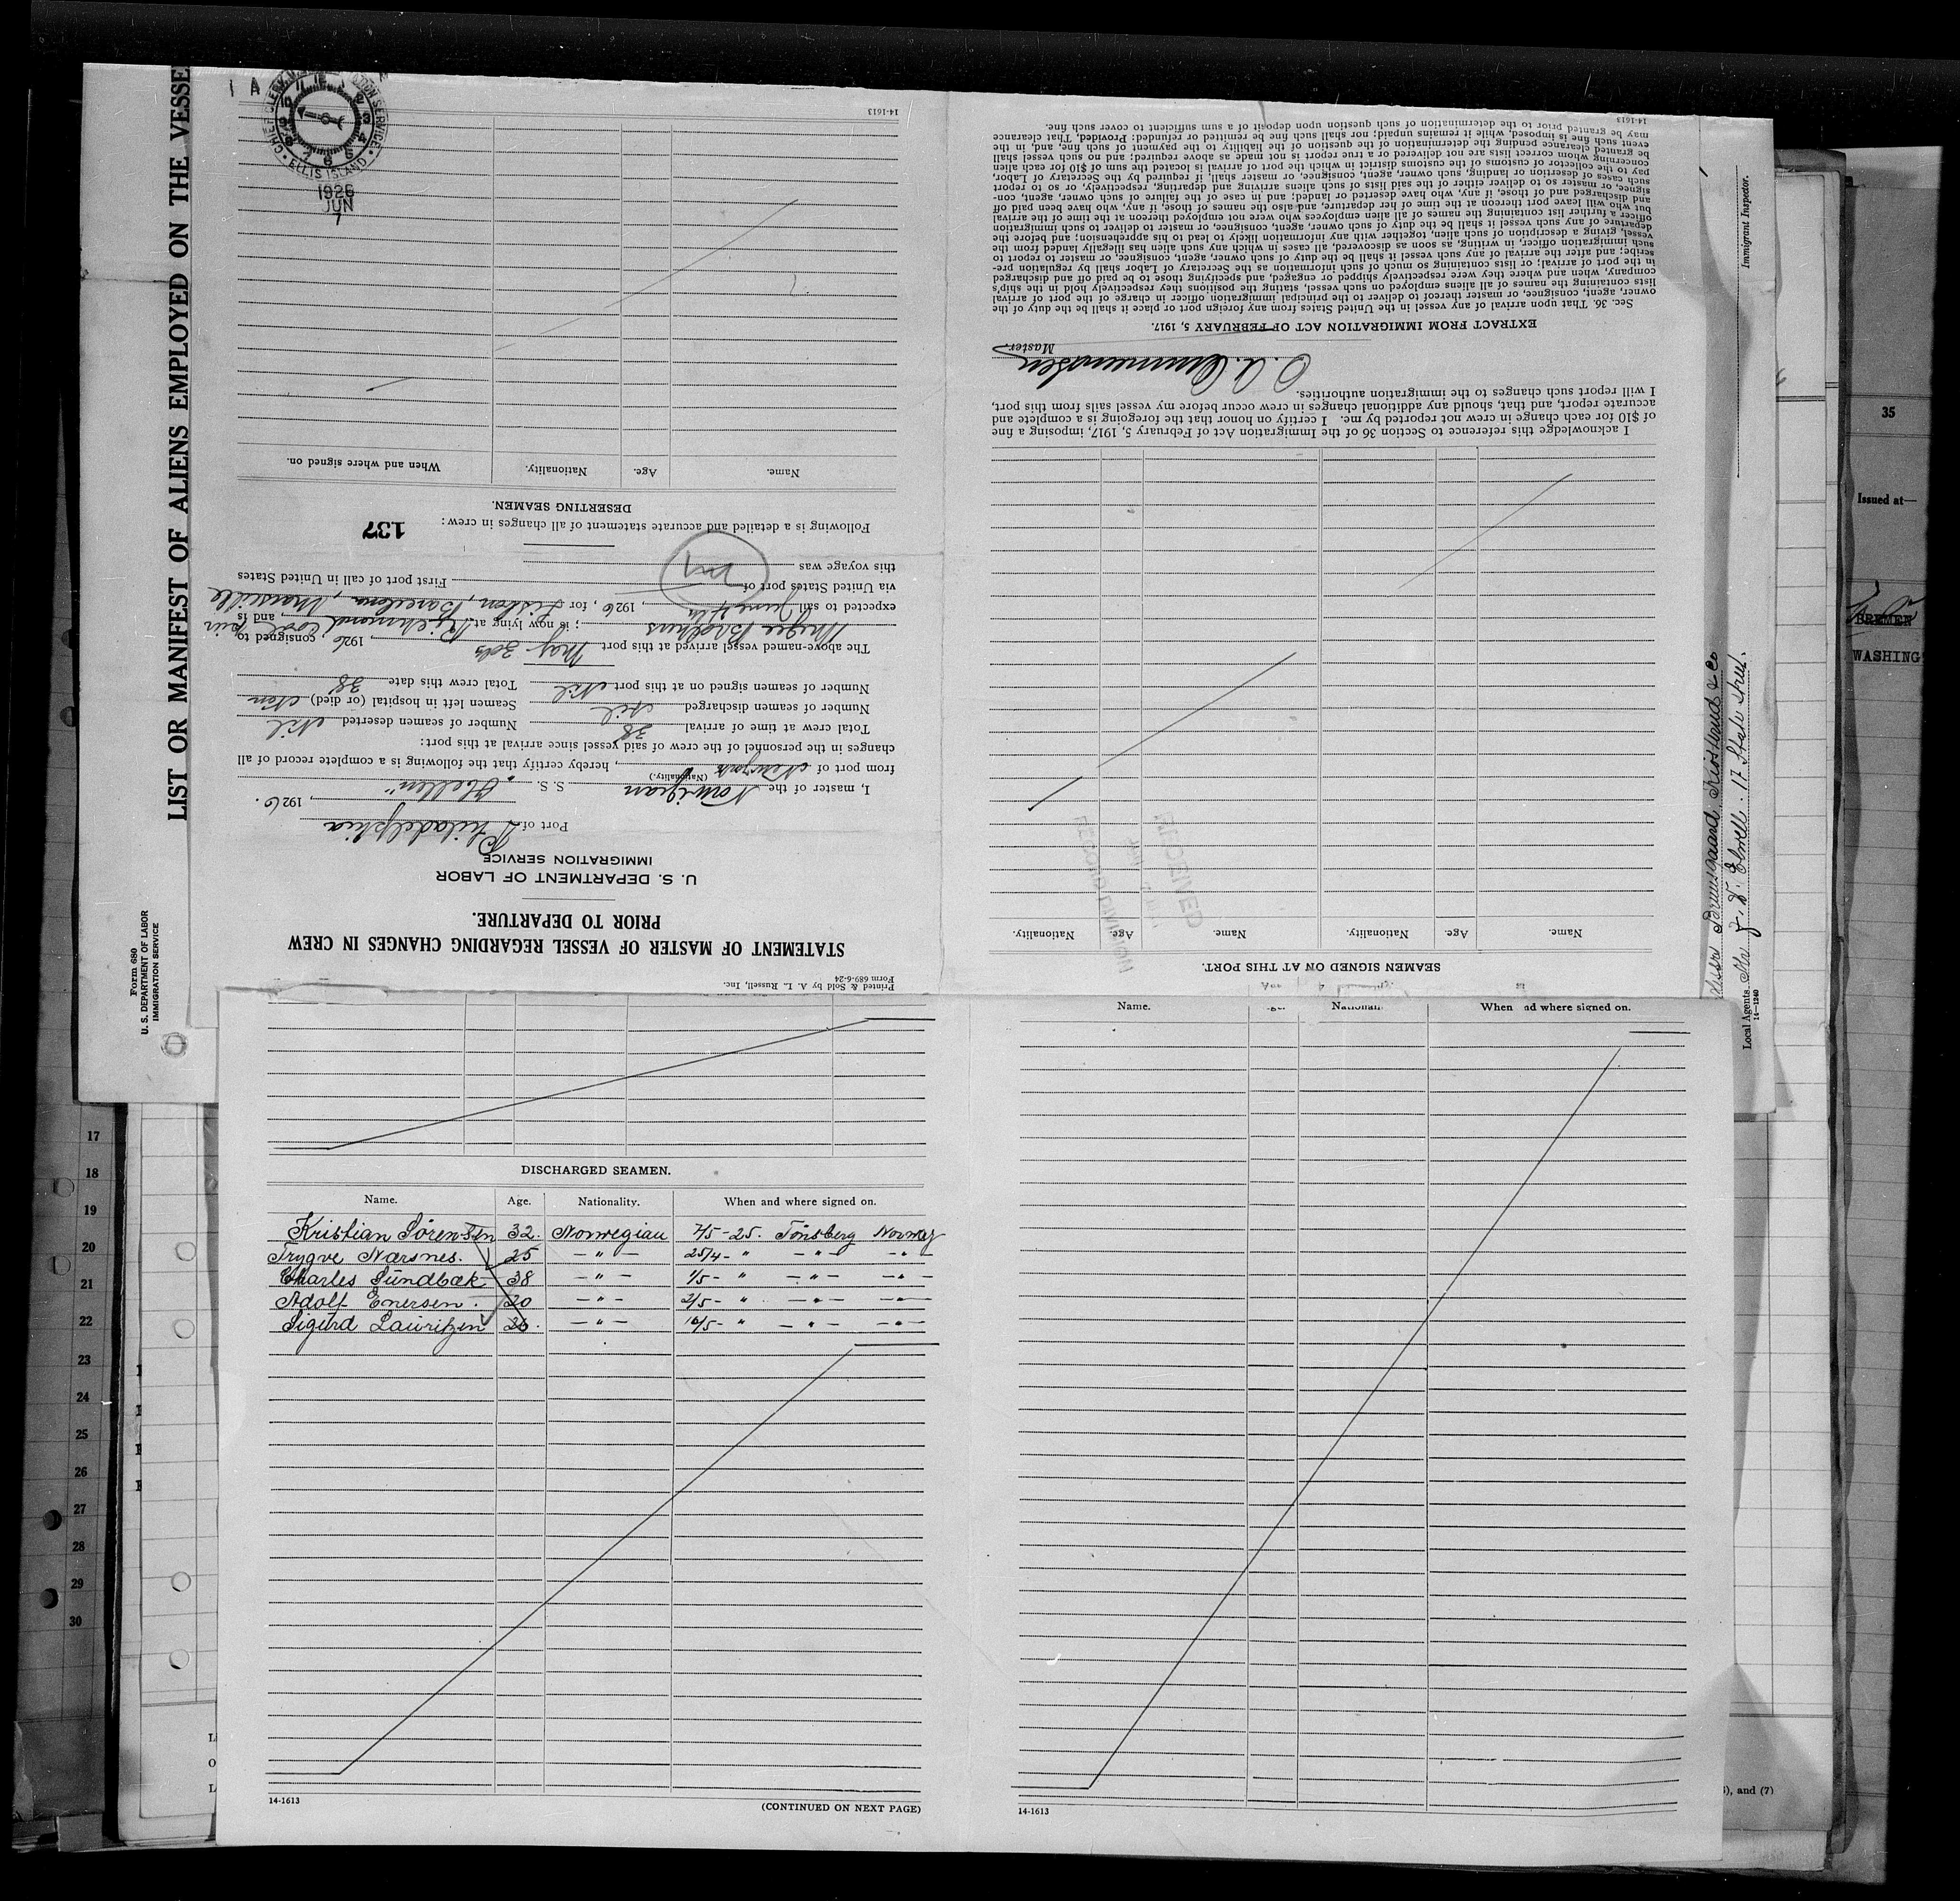 LIST OR MANIFEST OF ALIENS EMPLOYED ON THE VESSE
Form 680
U. S. DEPARTMENT OF LABOR
IMMIGRATION SERVICE
ELLIS ISLAND
1926
JUN
7
Printed & Sold by A. L. Russell, Inc.
Form 689-6-24
STATEMENT OF MASTER OF VESSEL REGARDING CHANGES IN CREW
PRIOR TO DEPARTURE.
U. S. DEPARTMENT OF LABOR
IMMIGRATION SERVICE
Port of Philadelphia, 1926.
I, master of the Norwigian S. S.
(Nationality.)
from port of Newyork, hereby certify that the following is a complete record of all
changes in the personnel of the crew of said vessel since arrival at this port:
Total crew at time of arrival 38 Number of seamen deserted Nil
Number of seamen discharged Nil Seamen left in hospital (or died)
Number of seamen signed on at this port Nil Total crew this date 38
The above-named vessel arrived at this port May 30th 1926 consigned to
; is now lying at Richmond Coal pier and is
expected to sail June, 1926, for Lisbon, Barcelona, Marseille
via United States port of First port of call in United States
this voyage was
Following is a detailed and accurate statement of all changes in crew: 137
DESERTING SEAMEN.
Name. Age. Nationality. When and where signed on.
14-1613
SEAMEN SIGNED ON AT THIS PORT.
Name. Age. Nationality. Name. Age. Nationality.
RECEIVED
RECORD DIVISION
I acknowledge this reference to Section 36 of the Immigration Act of February 5, 1917, imposing a fine
of $10 for each change in crew not reported by me. I certify on honor that the foregoing is a complete and
accurate report, and that, should any additional changes in crew occur before my vessel sails from this port,
I will report such changes to the immigration authorities.
Master.
EXTRACT FROM IMMIGRATION ACT OF FEBRUARY 5, 1917.
Sec. 36. That upon arrival of any vessel in the United States from any foreign port or place it shall be the duty of the
owner, agent, consignee, or master thereof to deliver to the principal immigration officer in charge of the port of arrival
lists containing the names of all aliens employed on such vessel, stating the positions they respectively hold in the ship's
company, when and where they were respectively shipped or engaged, and specifying those to be paid off and discharged
in the port of arrival; or lists containing so much of such information as the Secretary of Labor shall by regulation pre-
scribe; and after the arrival of any such vessel it shall be the duty of such owner, agent, consignee, or master to report to
such immigration officer, in writing, as soon as discovered, all cases in which any such alien has illegally landed from the
vessel, giving a description of such alien, together with any information likely to lead to his apprehension; and before the
departure of any such vessel it shall be the duty of such owner, agent, consignee, or master to deliver to such immigration
officer a further list containing the names of all alien employees who were not employed thereon at the time of the arrival
but who will leave port thereon at the time of her departure, and also the names of those, if any, who have been paid off
and discharged and of those, if any, who have deserted or landed; and in case of the failure of such owner, agent, con-
signee, or master so to deliver either of the said lists of such aliens arriving and departing, respectively, or so to report
such cases of desertion or landing, such owner, agent, consignee, or master shall, if required by the Secretary of Labor,
pay to the collector of customs of the customs district in which the port of arrival is located the sum of $10 for each alien
concerning whom correct lists are not delivered or a true report is not made as above required; and no such vessel shall
be granted clearance pending the determination of the question of the liability to the payment of such fine, and, in the
event such fine is imposed, while it remains unpaid; nor shall such fine be remitted or refunded: Provided, That clearance
may be granted prior to the determination of such question upon deposit of a sum sufficient to cover such fine.
14-1613
Immigrant Inspector.
Local Agents 17 State Street.
14-1240
35
Issued at—
BREMEN
WASHING
DISCHARGED SEAMEN.
Name. Age. Nationality. When and where signed on.
Kristian Sörensen 32. Norwegian 7/5-25. Tönsberg Norway
Trygve Närsnes. 25 -"- 25/4- " -"- -"-
Charles Sündbæk 38 -"- 1/5- " -"- -"-
Adolf Enersen. 20 -"- 2/5- " -"- -"-
Sigürd Lauritzen 26. -"- 16/5- " -"- -"-
14-1613 (CONTINUED ON NEXT PAGE)
Name. When and where signed on.
14-1613
17
18
19
20
21
22
23
24
25
26
27
28
29
30
, and (7)